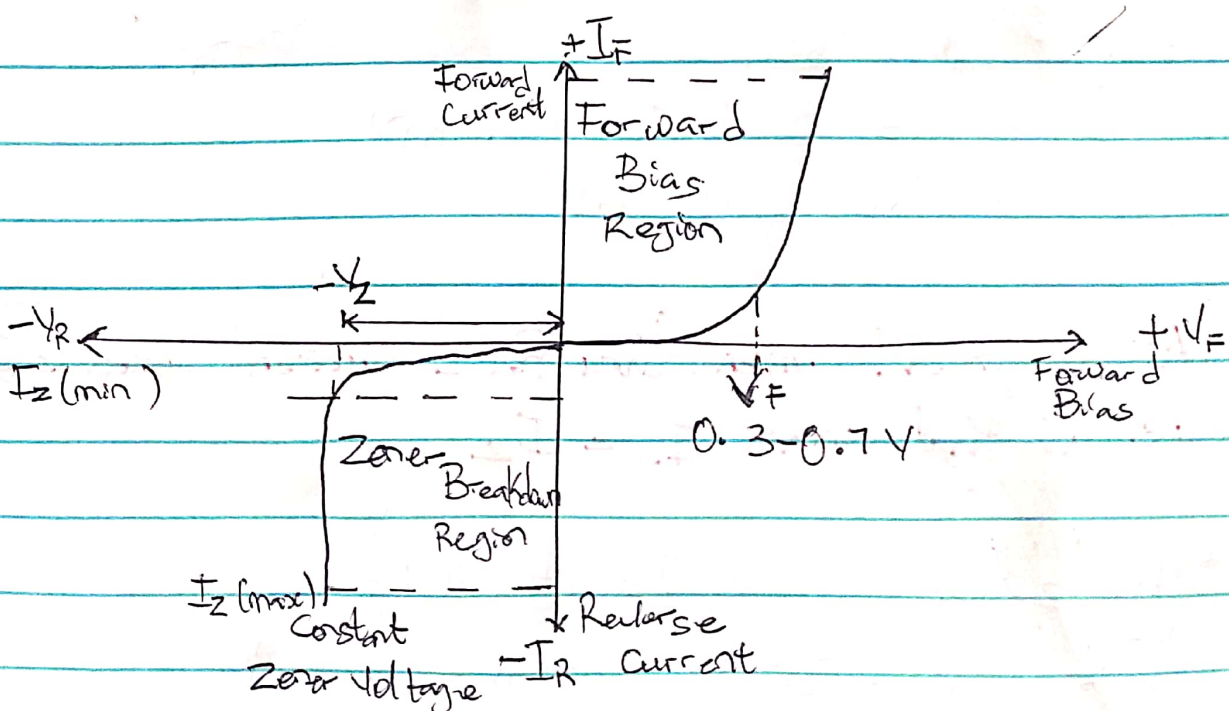 +I_F
Forward
Current
Forward
Bias
Region
-V_Z
-V_R
+ V_F
Forward
Bias
I_Z (min)
V_F
0.3-0.7 V
Zener
Breakdown
Region
I_Z (max)
Constant
Zener Voltage
Reverse
Current
-I_R